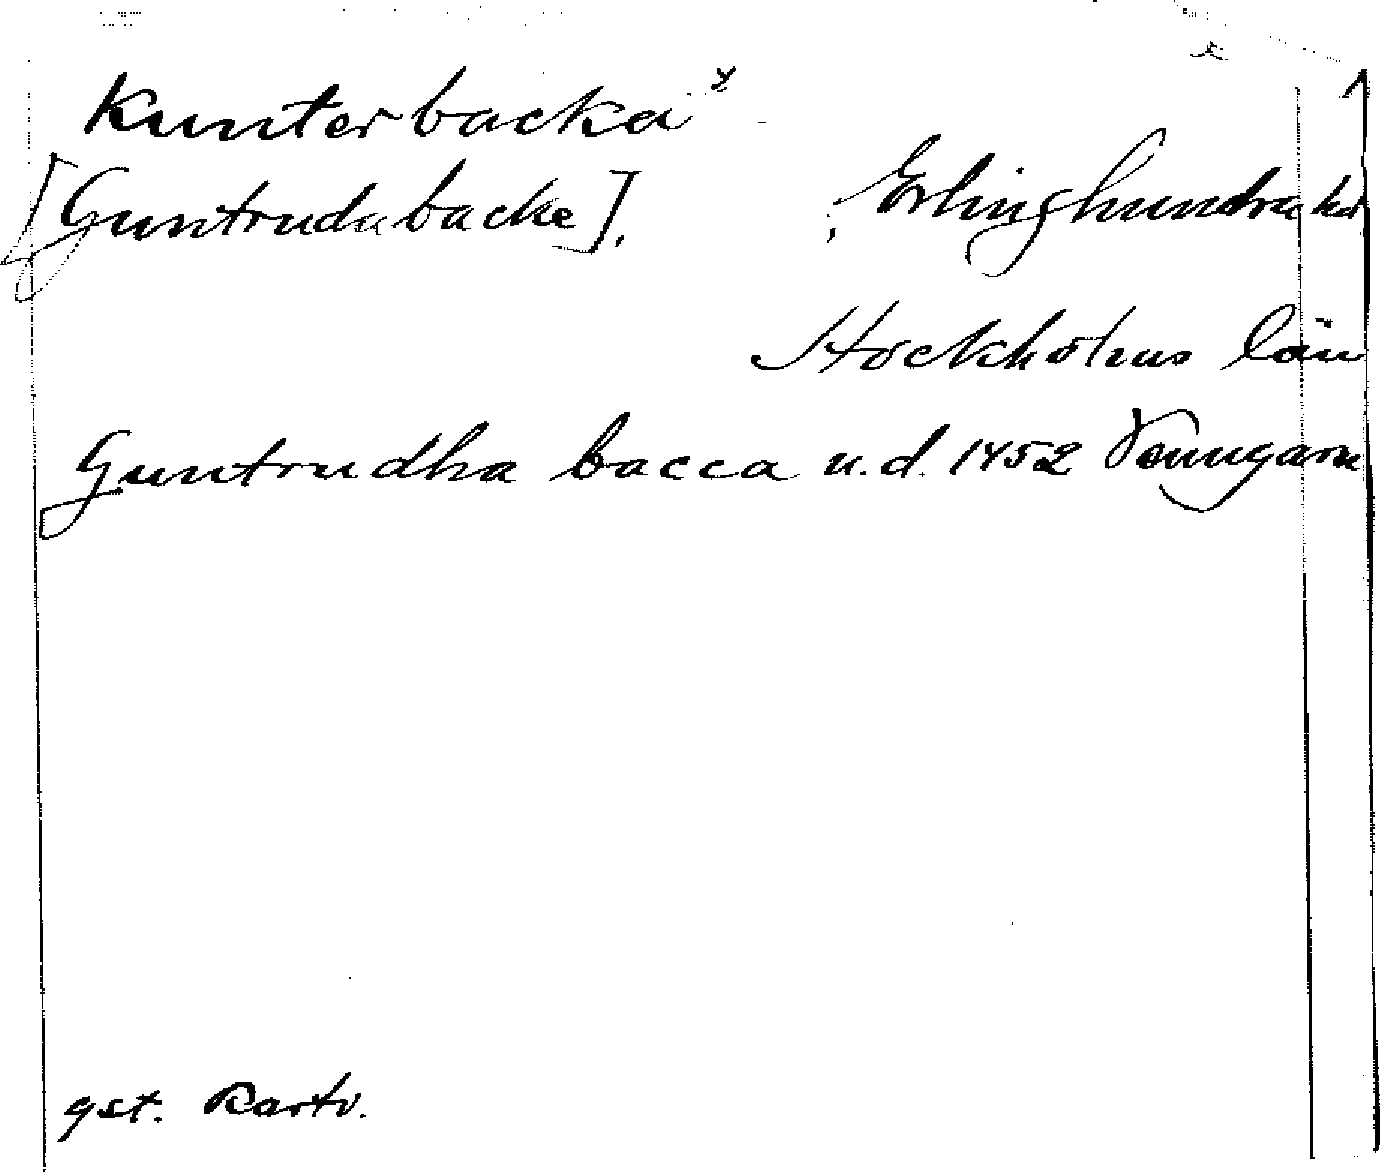 Kunterbacka x
[Guntrudabacke], Erlinghundra hd
Stockholms län
Guntrudha bacca u.d. 1452 Venngarn
gst. Kartv.